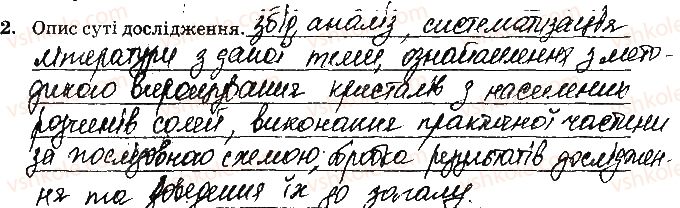 2. Опис суті дослідження. збір, аналіз, систематизація
літератури з даної теми, ознайомлення з мето-
дикою вирощування кристалів з насичених
розчинів солей, виконання практичної частини
за послідовною схемою, обробка результатів досліджен-
ня та доведення їх до загалу.